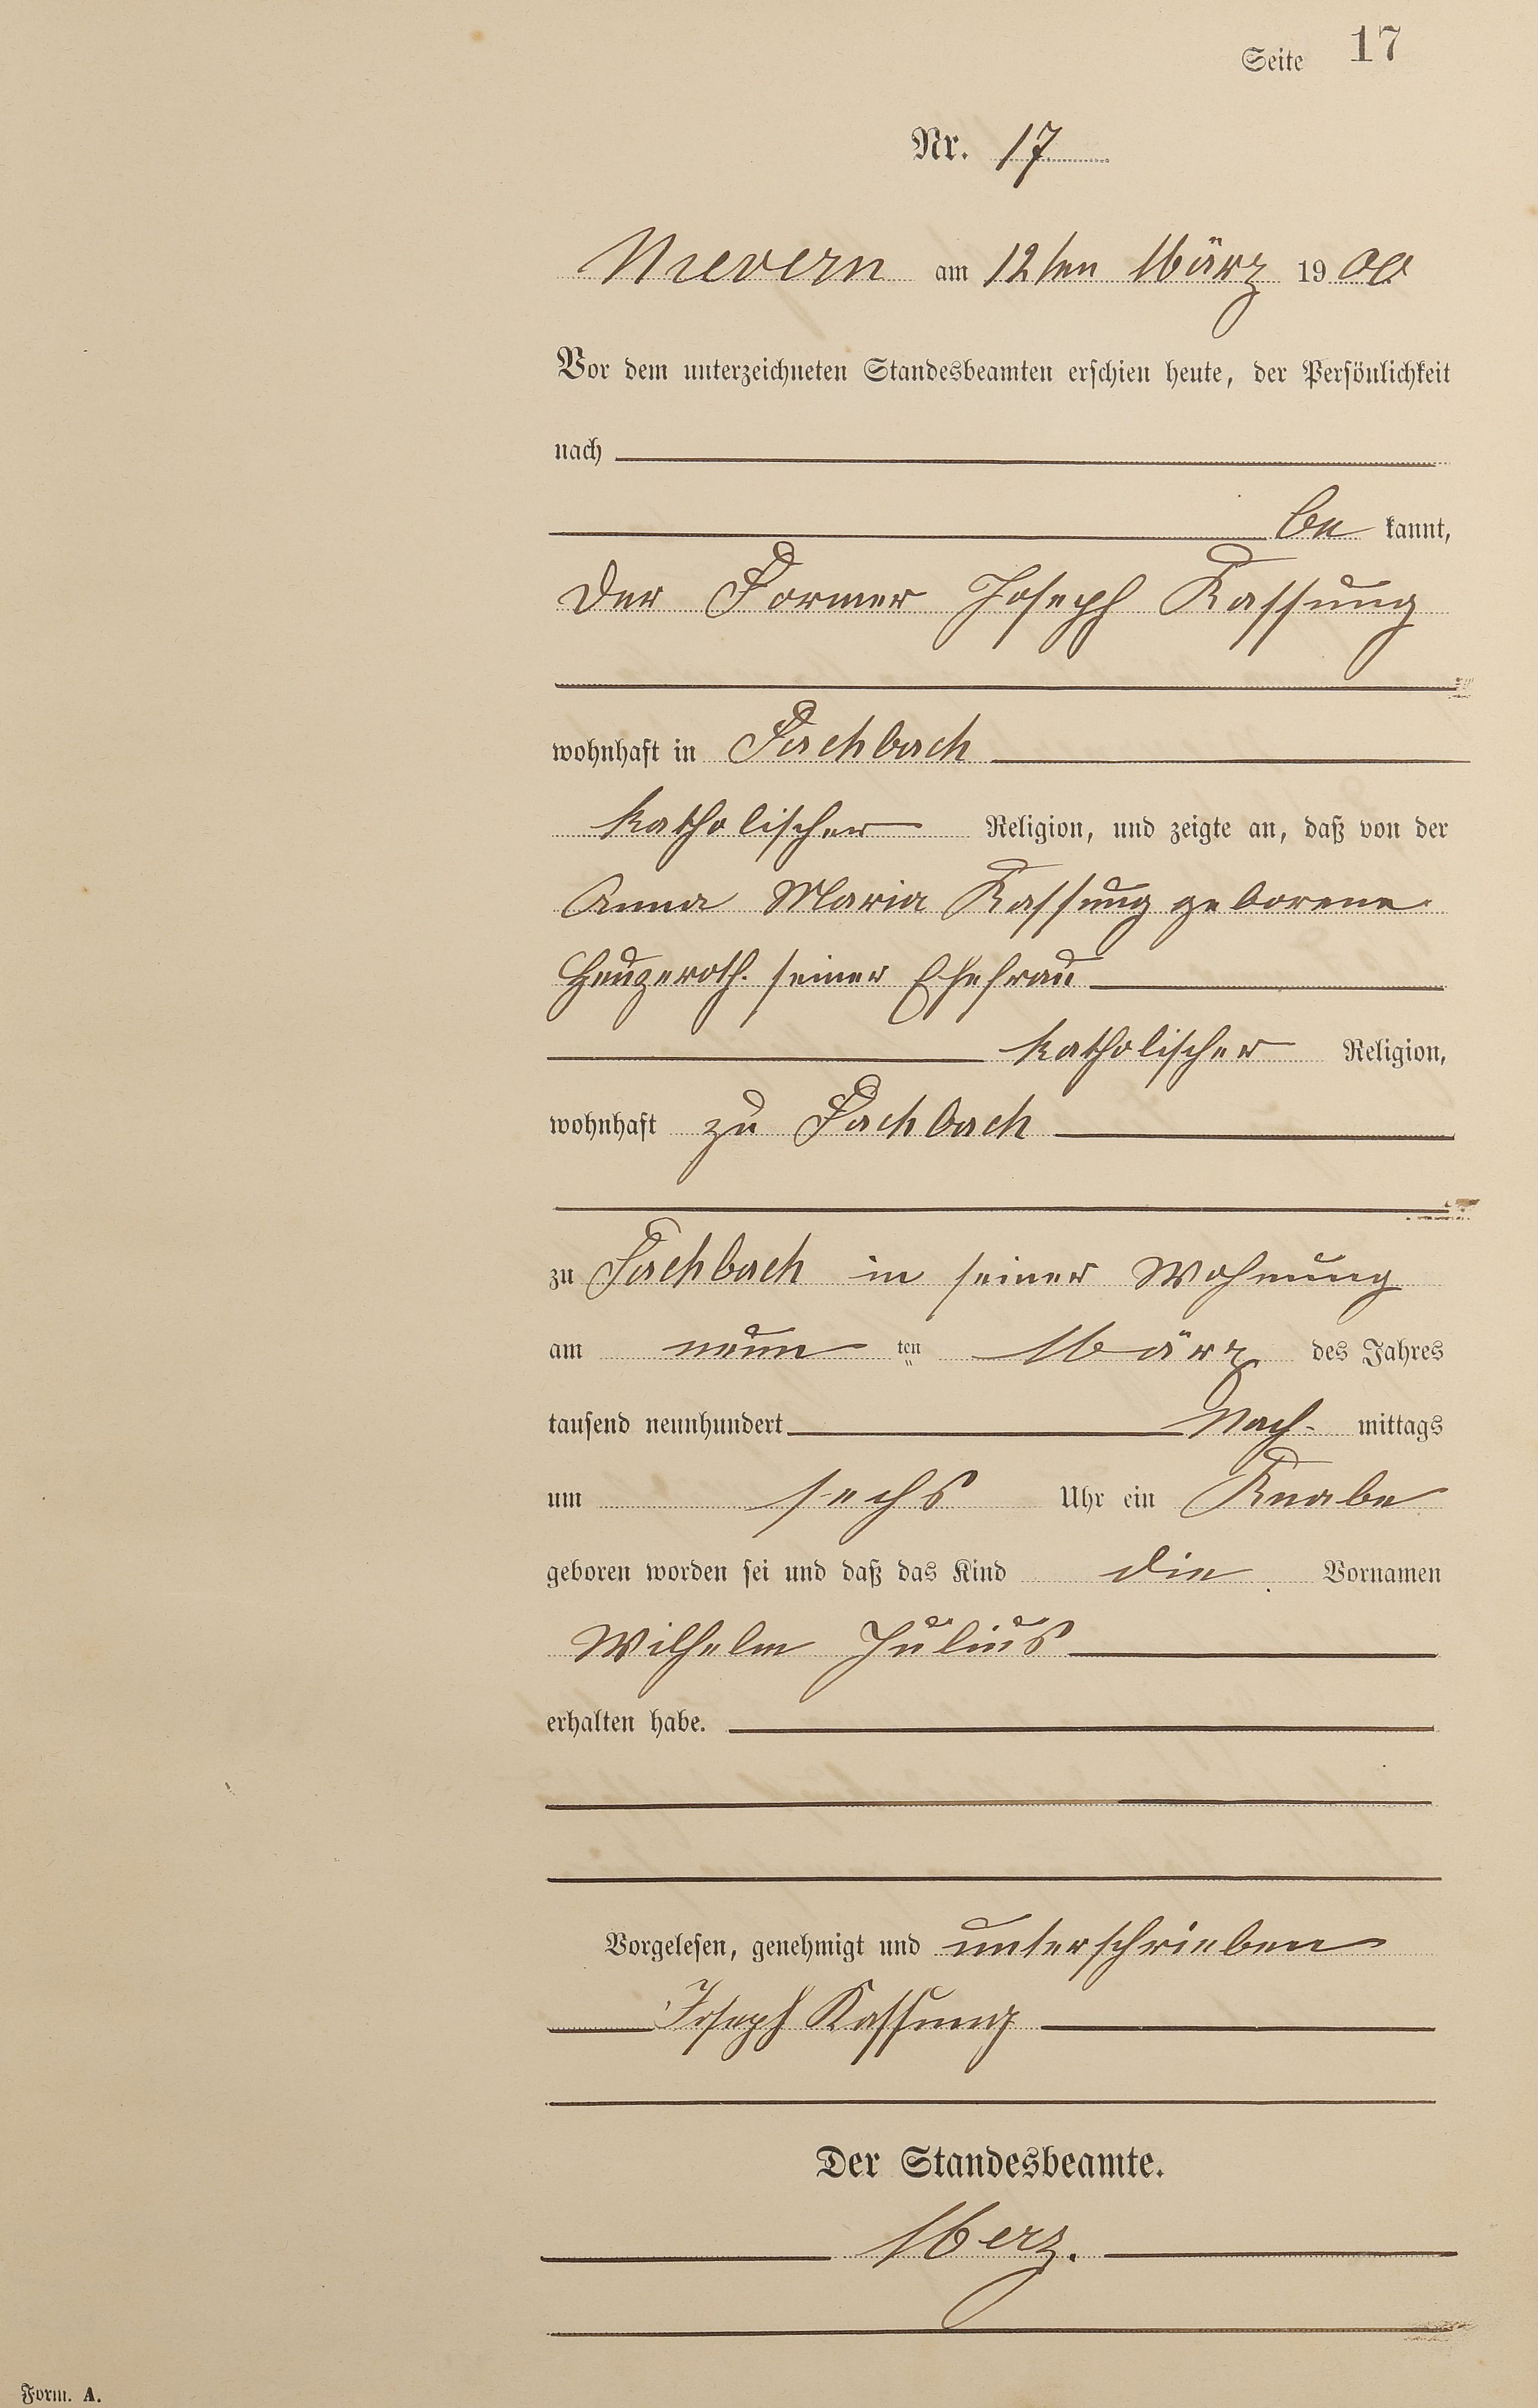 Seite 17
Nr. 17
Nievern am 12ten März 1900
Vor dem unterzeichneten Standesbeamten erschien heute, der Persönlichkeit
nach
be kannt,
der Former Joseph Kassung
wohnhaft in Fachbach
katholischer Religion, und zeigte an, daß von der
Anna Maria Kassung geborene
Heuzeroth. seiner Ehefrau
katholischer Religion,
wohnhaft zu Fachbach
zu Fachbach in seiner Wohnung
am neun ten März des Jahres
tausend neunhundert Nach- mittags
um sechs Uhr ein Knabe
geboren worden sei und daß das Kind die Vornamen
Wilhelm Julius
erhalten habe.
Vorgelesen, genehmigt und unterschrieben
Joseph Kassung
Der Standesbeamte.
Merz.
Form. A.